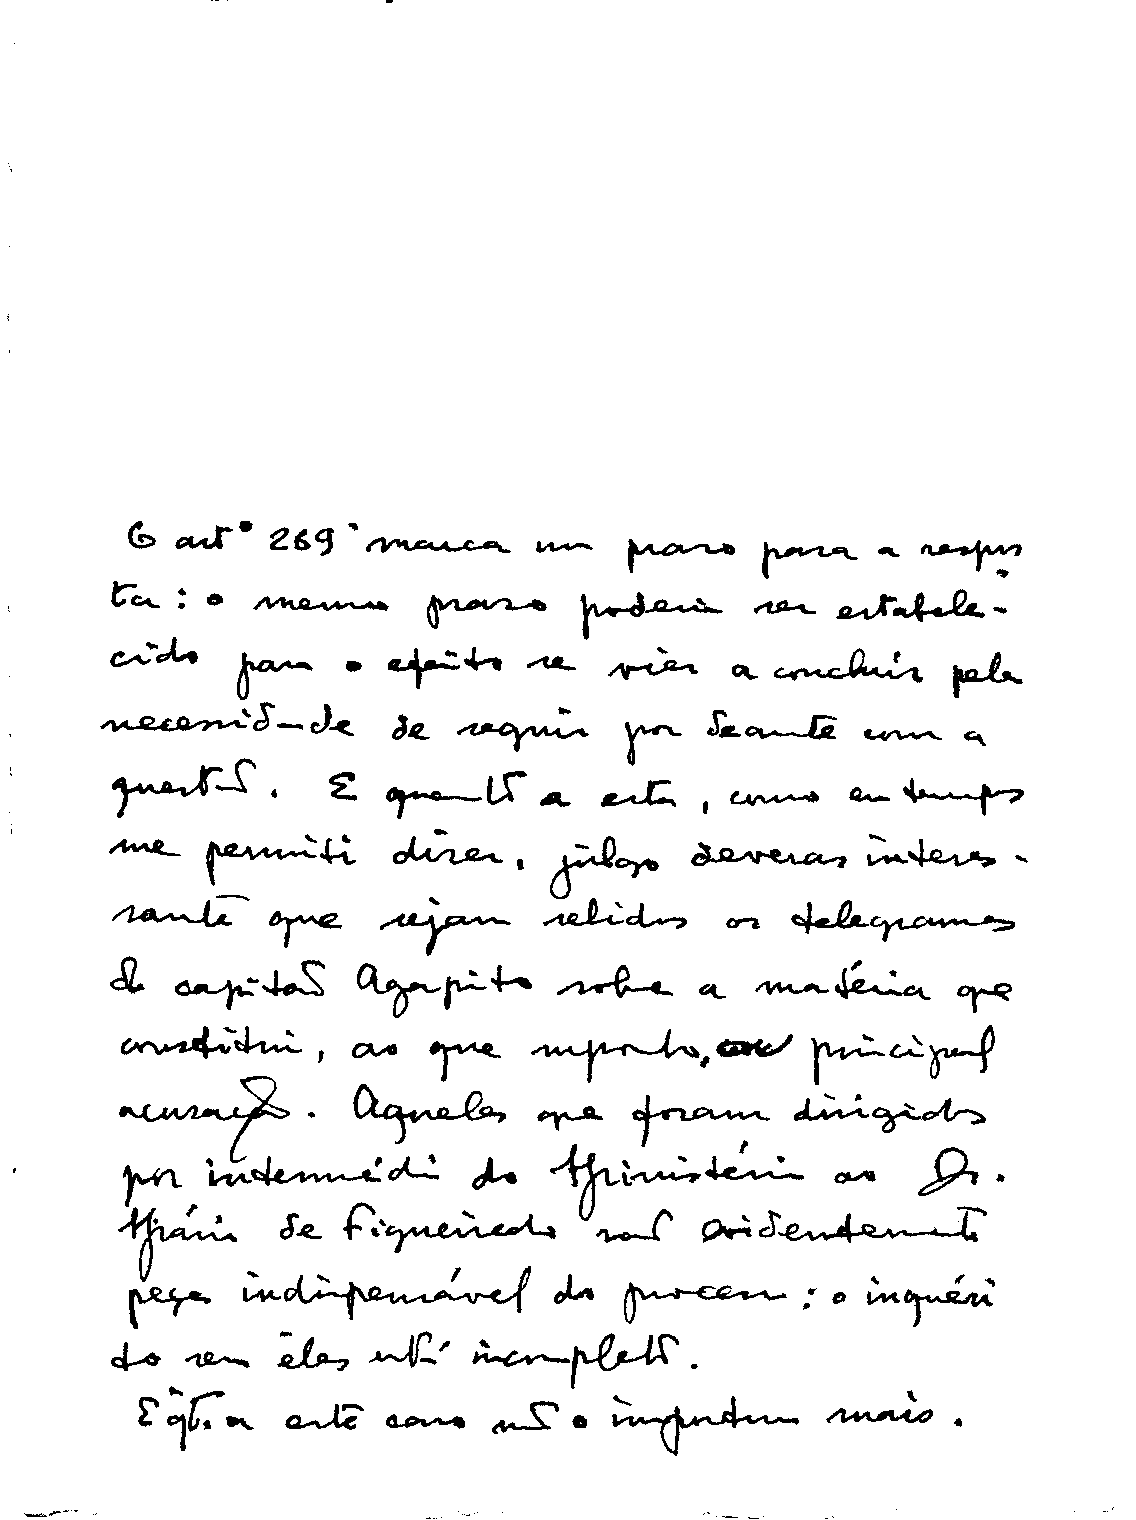 O artº 269º marca um prazo para a respos
ta: o mesmo prazo poderia ser estabele-
cido para o efeito se vier a concluir pela
necessidade de seguir por deante com a
questão. E quanto a esta, como em tempos
me permiti dizer, julgo deveras interes-
sante que sejam relidos os telegramas
do capitão Agapito sobre a matéria que
constitui, ao que suponho, principal
acusação. Aqueles que foram dirigidos
por intermédio do Ministério ao Dr.
Mário de Figueiredo são evidentemente
peça indispensável do processo; o inquéri
to sem êles está incompleto.
E qt. a este caso não o importuno mais.